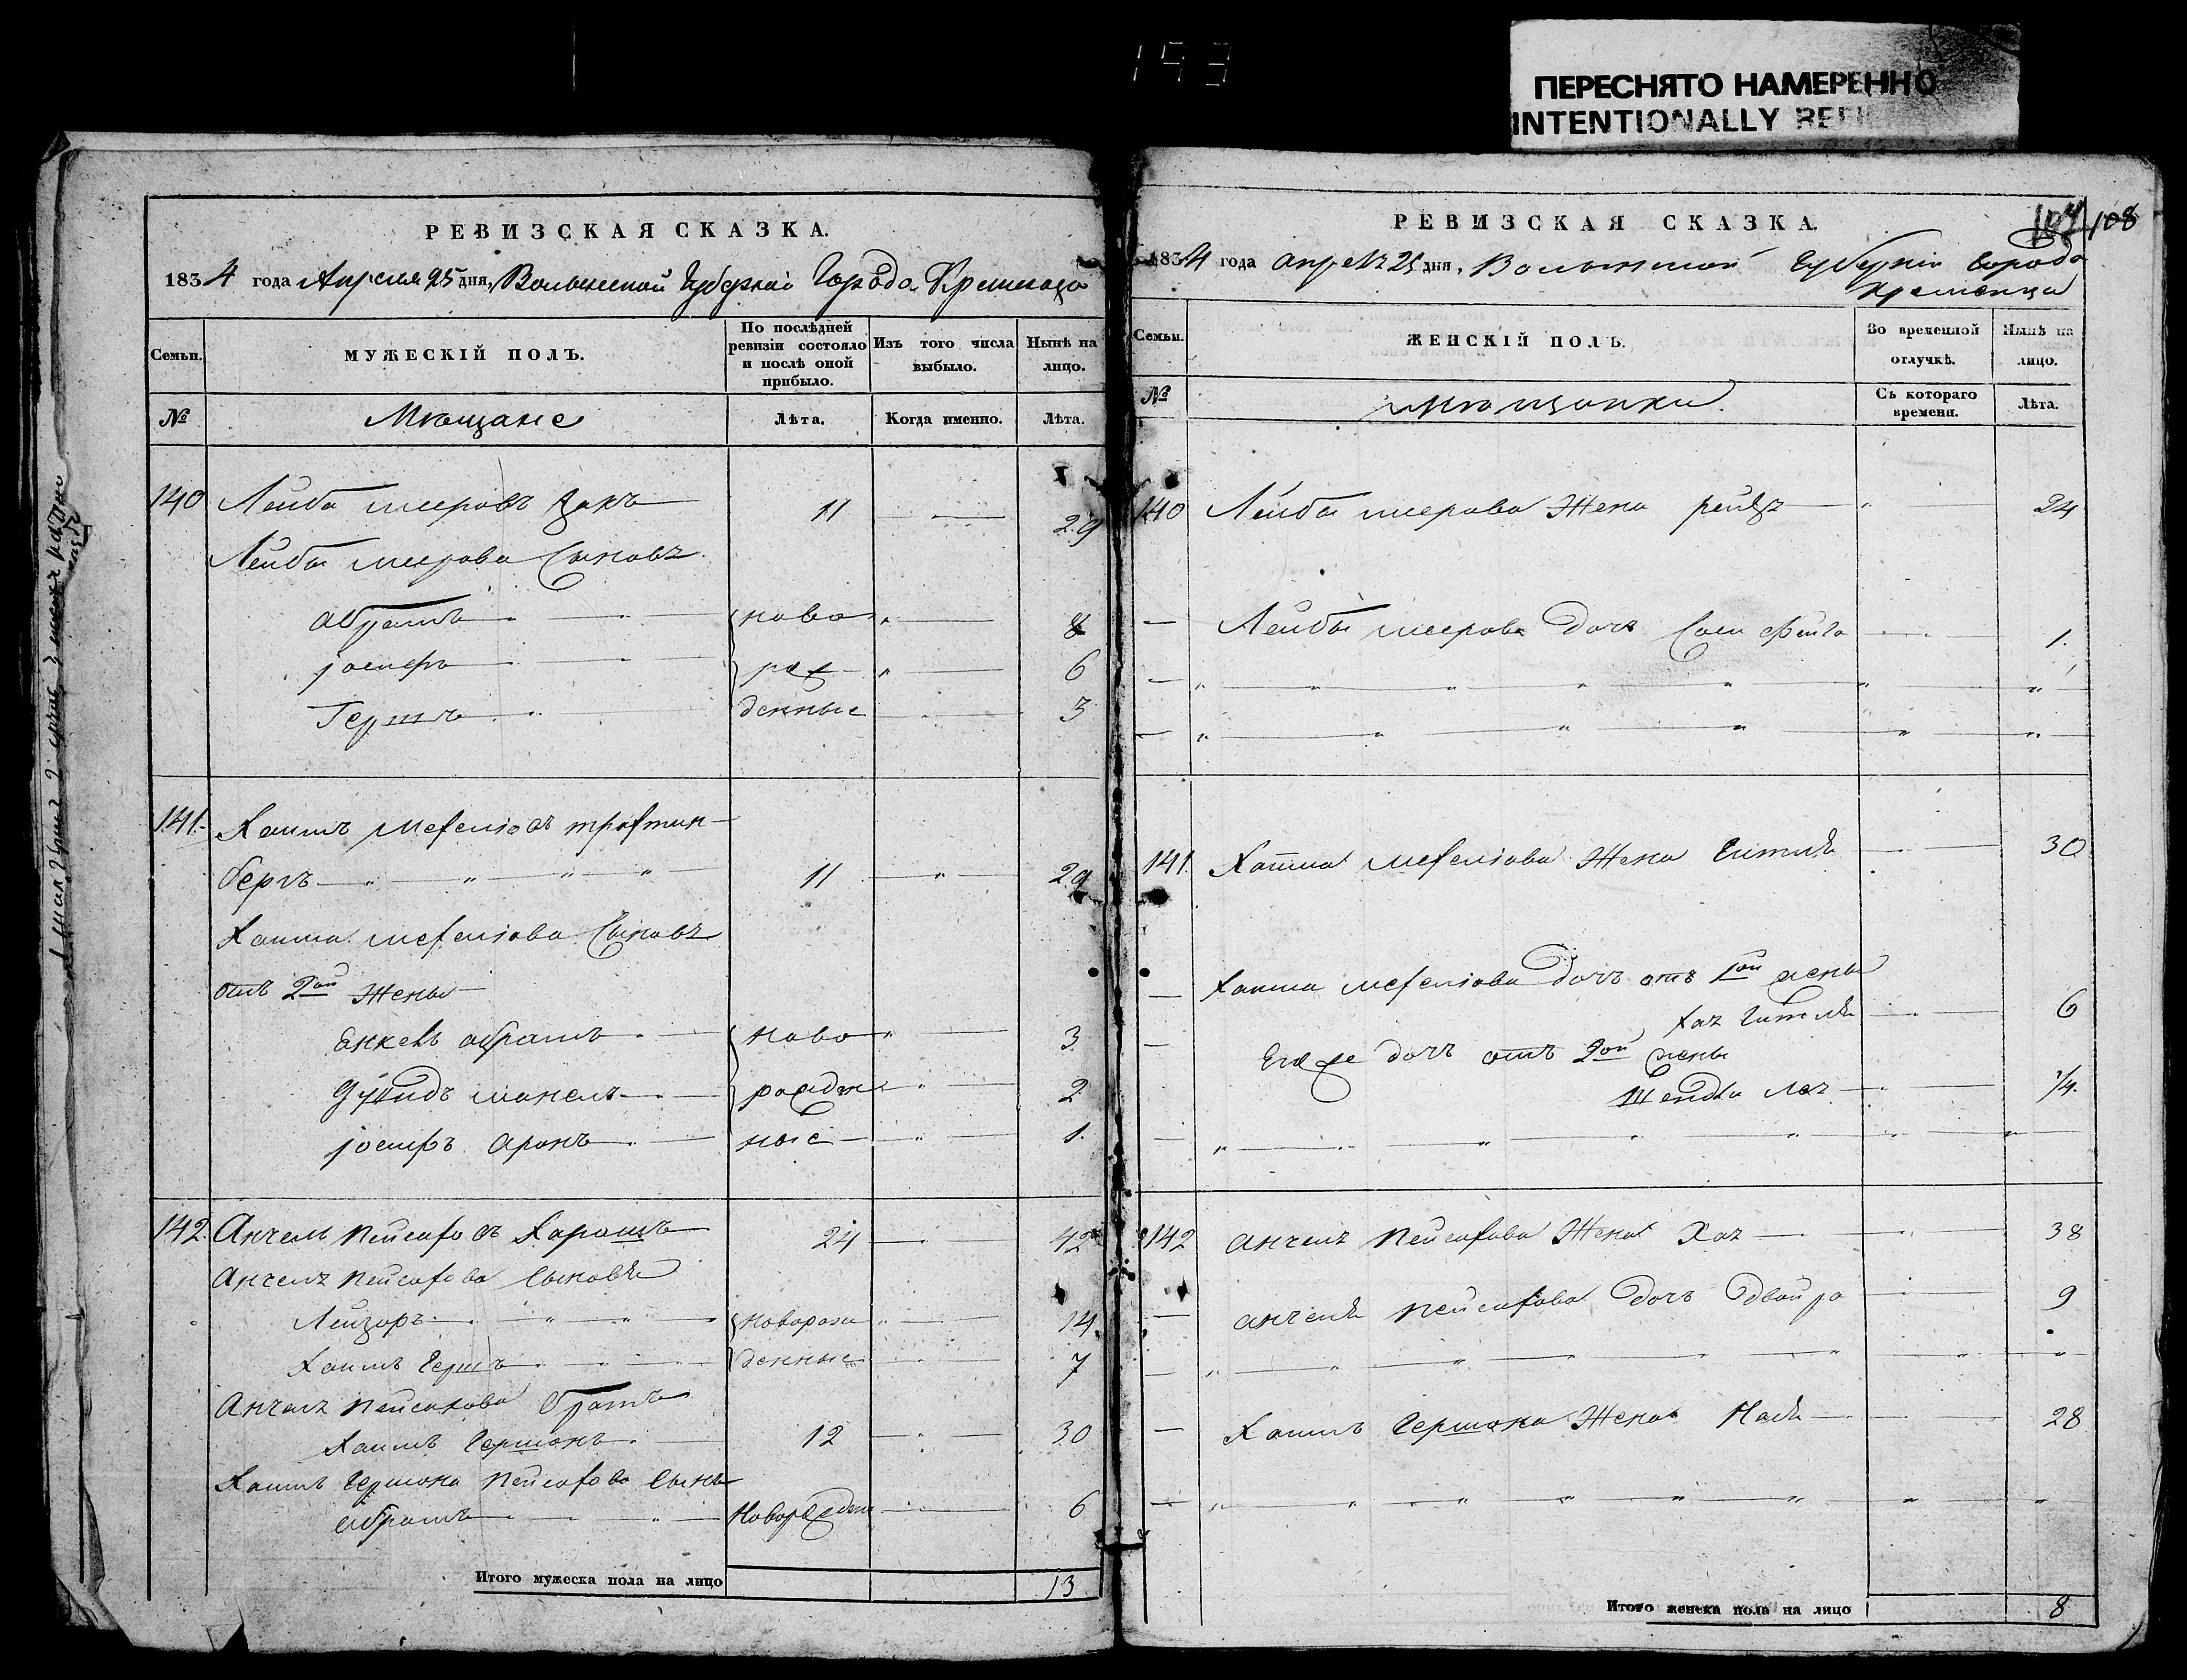 193
ПЕРЕСНЯТО НАМЕРЕННО
INTENTIONALLY
РЕВИЗСКАЯ СКАЗКА.
1834 года Апреля 25 дня, Волынской Губерніи Города Кременца
Семьи.
МУЖЕСКІЙ ПОЛЪ.
По послѣдней ревизіи состояло и послѣ оной прибыло.
Изъ того числа выбыло.
Нынѣ на лицо.
№
Мѣщане
Лѣта.
Когда именно.
Лѣта.
140 Лейба Мееровъ Цакъ 11 29
Лейбы Меерова Сыновья
Абрамъ ново 8
Іосифъ рож 6
Гершъ денные 3
141 Хаимъ Мехелiовъ Трахтен
бергъ 11 29
Хаима Мехелiова Сыновья
отъ 2ой Жены
Енкель Абрамъ ново 3
Манель рожден 2
Іосифъ Аронъ ные 1.
142. Анчель Пейсаховъ Харашъ 24 42
Анчеля Пейсахова Сыновья
Лейзоръ новорож 14
Хаимъ Гершъ денные 7
Анчеля Пейсахова братъ
Хаимъ Гершонъ 12 30
Хаимъ Гершона Пейсахова Сынъ
Абрамъ Новорожден 6
Итого мужеска пола на лицо 13
РЕВИЗСКАЯ СКАЗКА.
107 108
1834 года Апреля 25 дня, Волынской Губерніи Города
Кременца
Семьи.
ЖЕНСКІЙ ПОЛЪ.
Во временной отлучкѣ.
Нынѣ на лицо.
№
Мѣщанки.
Съ котораго времени.
Лѣта.
140 Лейбы Меерова Жена Рейзя 24
Лейбы Меерова Дочь Сося Фейга 1.
141. Хаима Мехелiова Жена Гителя 30
Хаима Мехелiова Дочь отъ 1ой жены
Хая Гителя 6
Его же дочь отъ 2ой жены
Шейндля Лея 1/4.
142 Анчеля Пейсахова Жена Хая 38
Анчеля Пейсахова Дочь Двойра 9
Хаимъ Гершона Жена 28
Итого женска пола на лицо 8